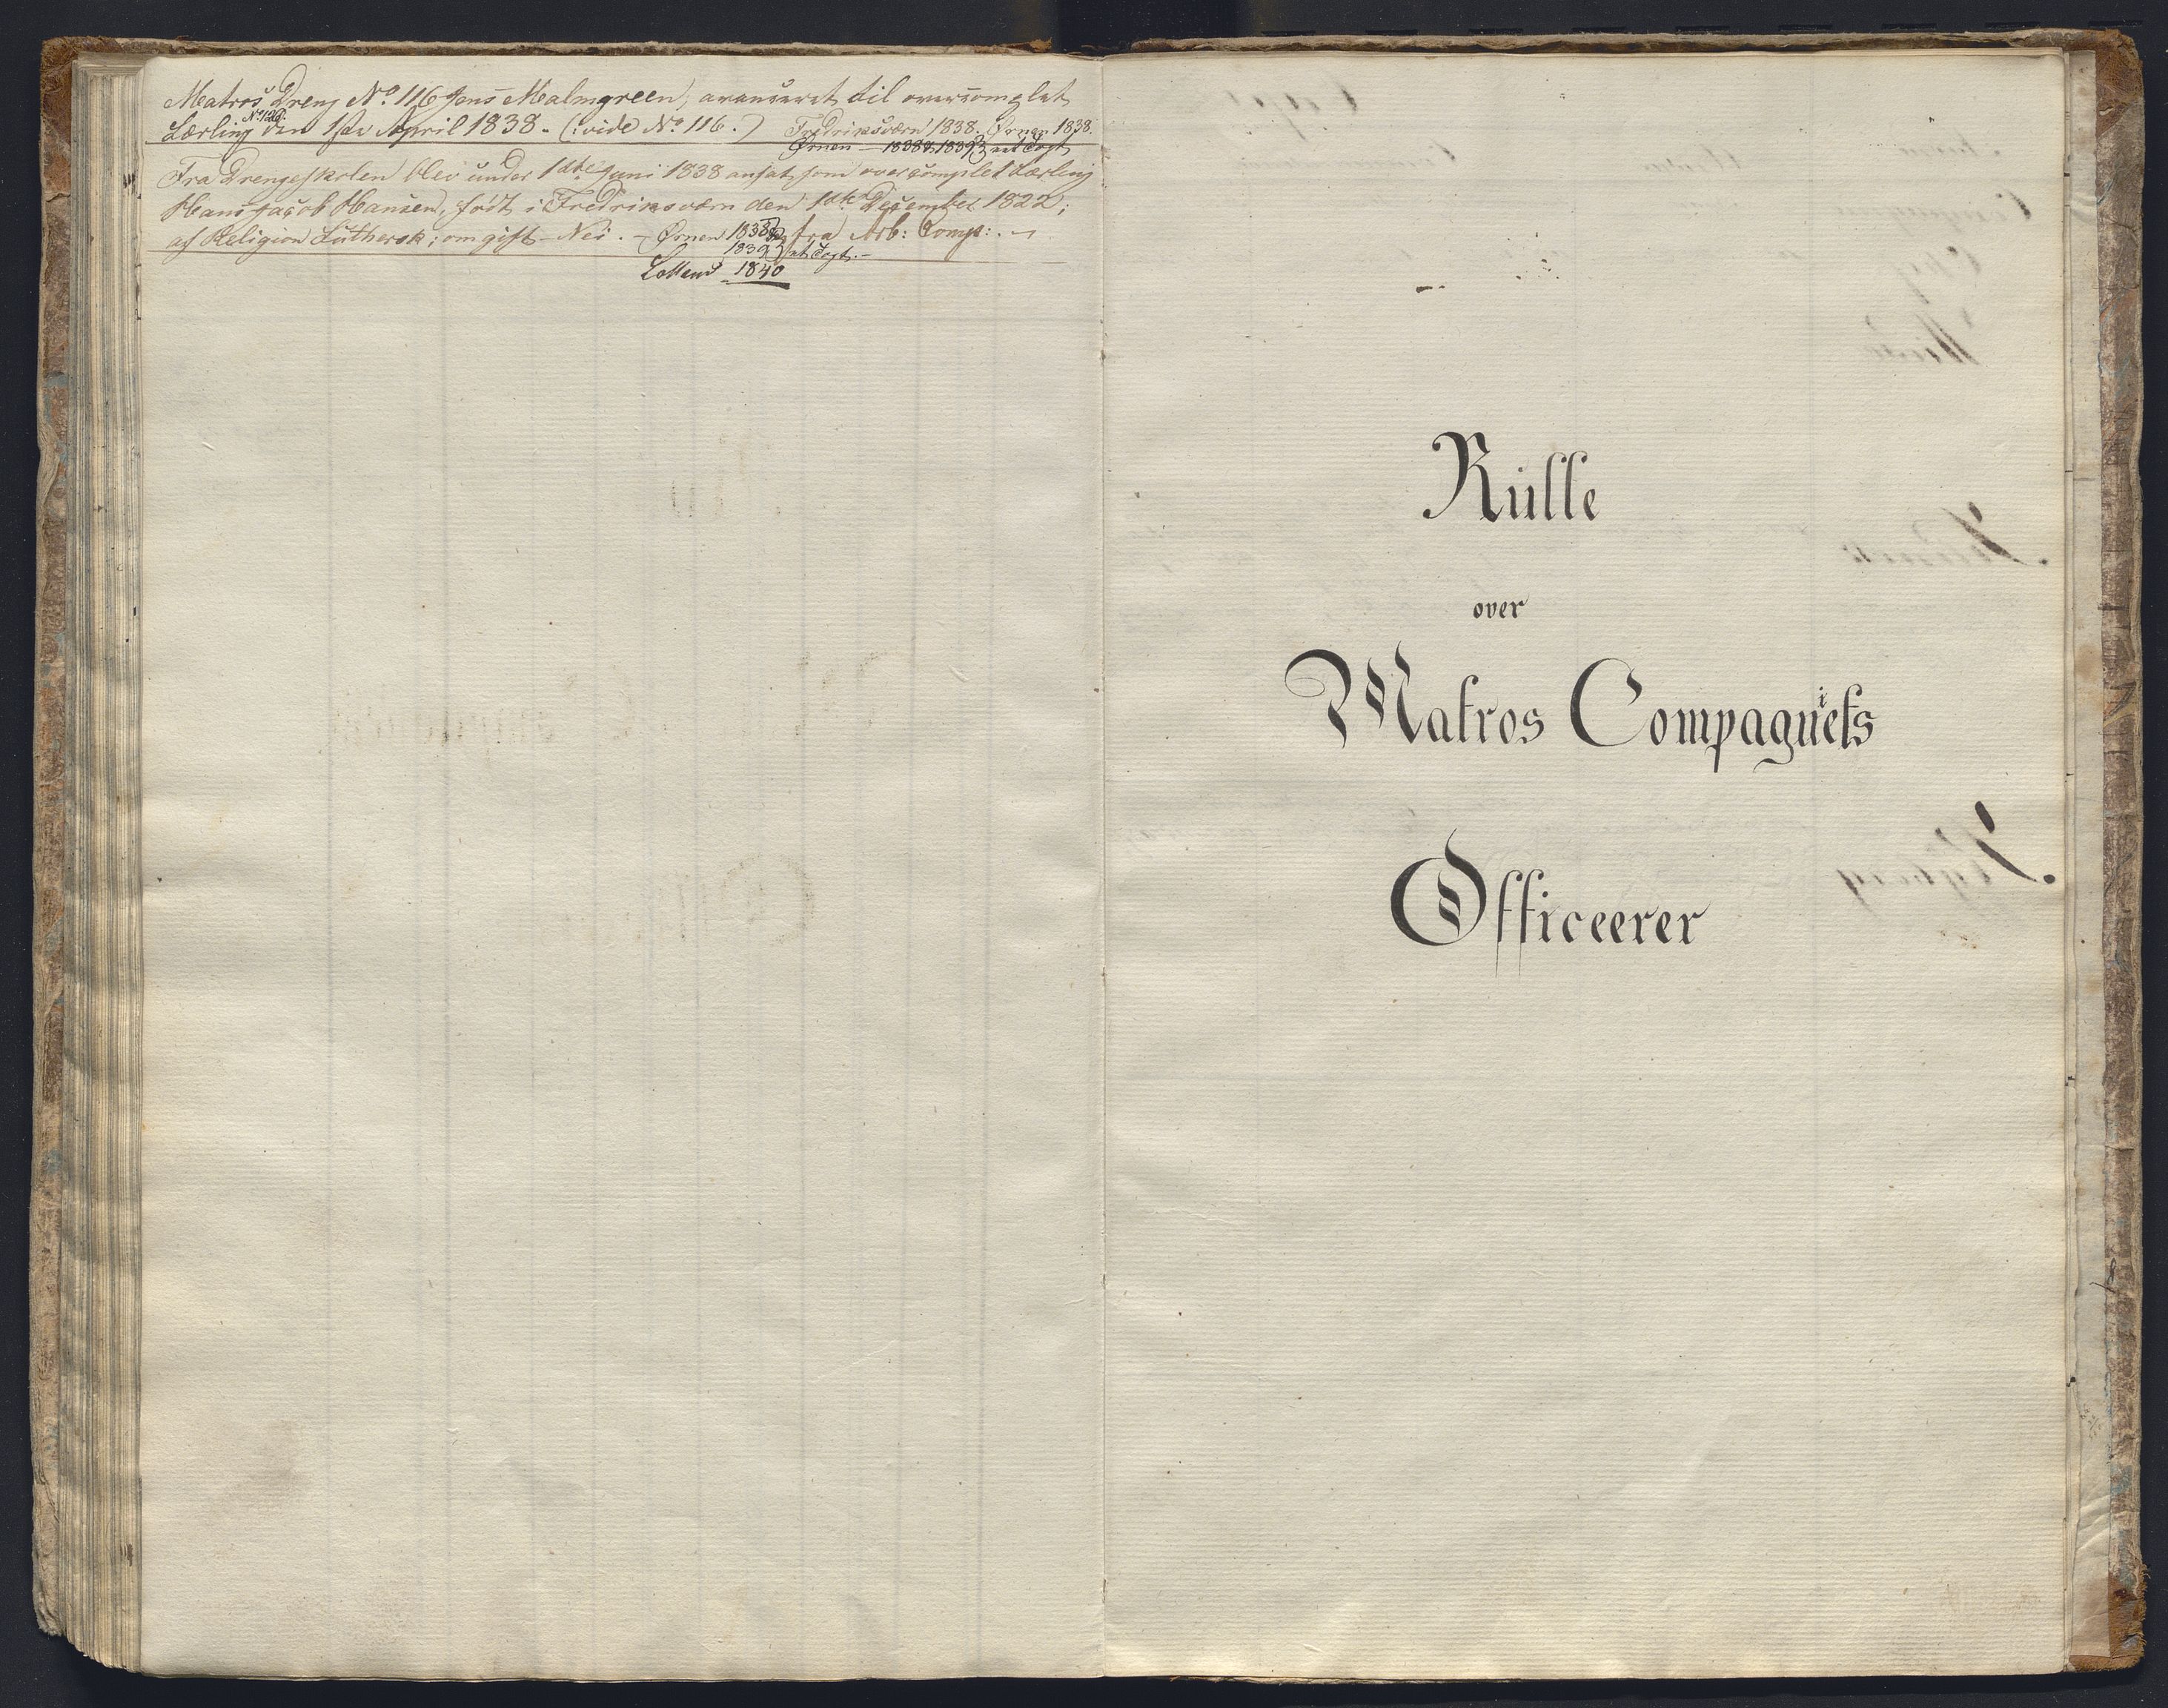 Matros Dreng No. 116 Jens Malmgreen, avanseret til overcomplet
Lærling No. 120. den 1ste April 1838. (: vide No. 116.) Fredriksværn 1838. Ørnen 1838.
Ørnen — 1838 & 1839 } et Togt
Fra Drengeskolen blev under 1ste Juni 1838 ansat som overcomplet Lærling
Hans Jacob Hansen, født i Fredriksværn den 1ste December 1822;
af Religion Luthersk; om gift – Nei. – Ørnen 1838 & fra Arb: Comp:.
1839 } et Togt. –
Lolland 1840
Rulle
over
Matros Compagniets
Officeerer